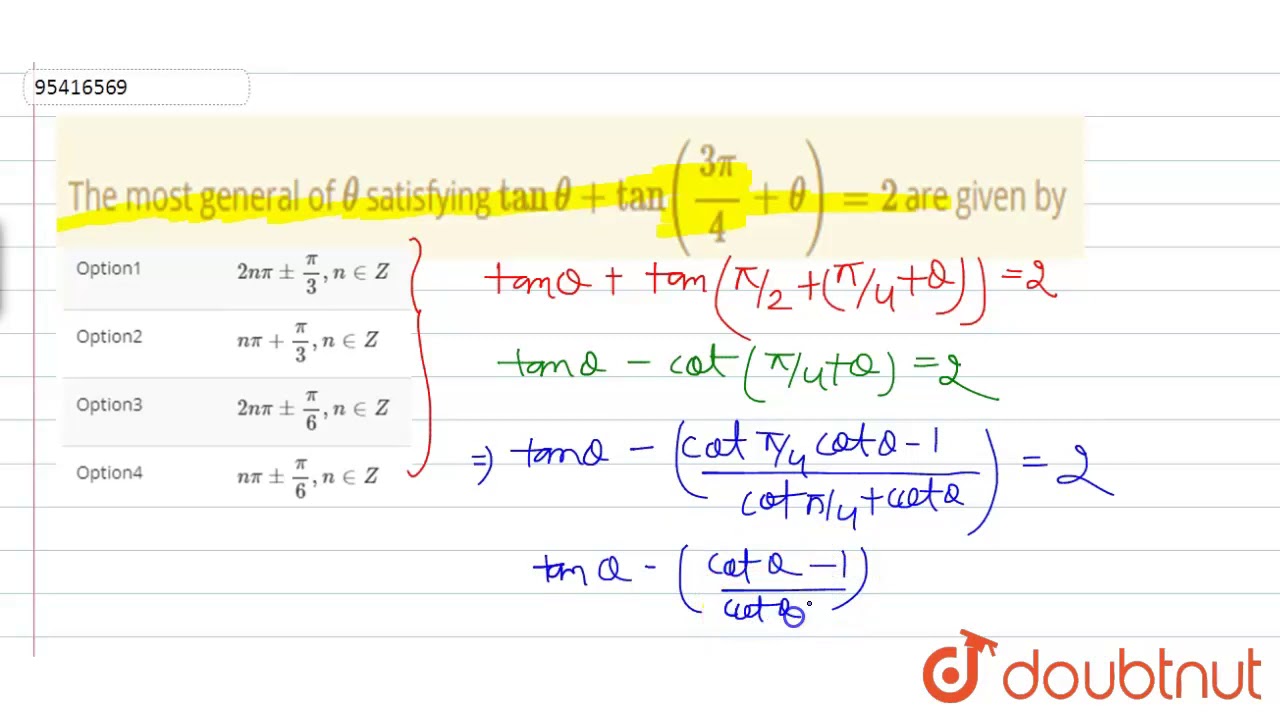 95416569
The most general of θ satisfying tan θ + tan(3π/4 + θ) = 2 are given by
Option1 2nπ ± π/3, n ∈ Z
Option2 nπ + π/3, n ∈ Z
Option3 2nπ ± π/6, n ∈ Z
Option4 nπ ± π/6, n ∈ Z
tanθ + tan(π/2 + (π/4 + θ)) = 2
tanθ − cot(π/4 + θ) = 2
⇒) tanθ − (cot π/4 cotθ − 1 / cot π/4 + cotθ) = 2
tanθ − (cotθ − 1 / cotθ)
doubtnut